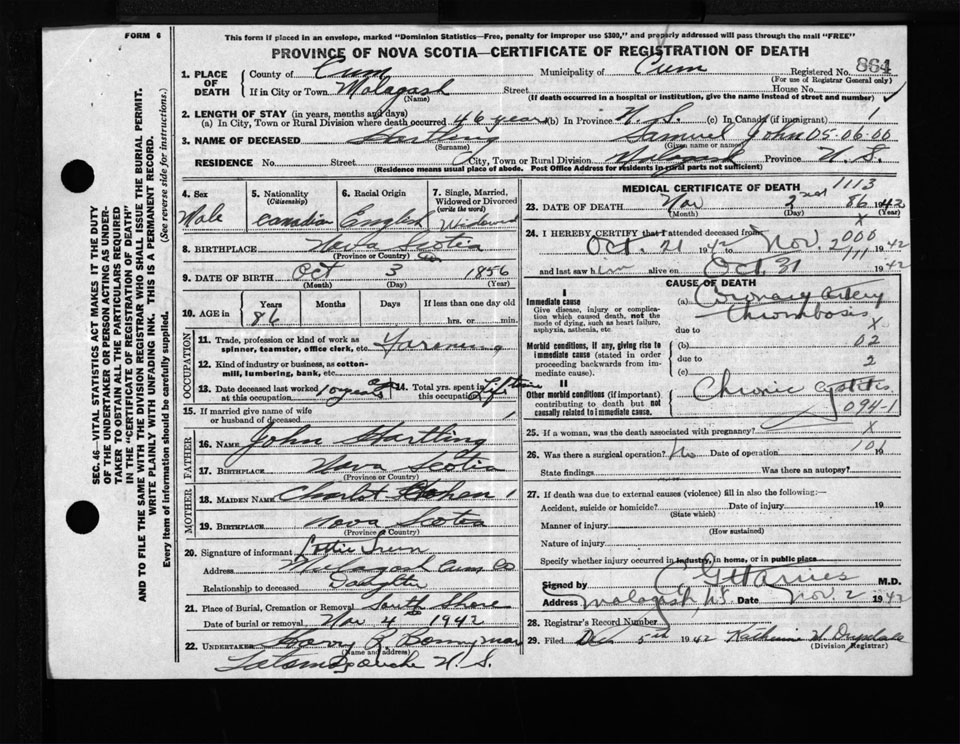 FORM 6
This form if placed in an envelope, marked "Dominion Statistics—Free, penalty for improper use $300," and properly addressed will pass through the mail "FREE"
PROVINCE OF NOVA SCOTIA—CERTIFICATE OF REGISTRATION OF DEATH
1. PLACE OF DEATH County of Cum Municipality of Cum Registered No. 864
(For use of Registrar General only)
If in City or Town Malagash Street House No.
(Name) (If death occurred in a hospital or institution, give the name instead of street and number)
2. LENGTH OF STAY (in years, months and days)
(a) In City, Town or Rural Division where death occurred 46 years (b) In Province N.S. (c) In Canada (if immigrant)
3. NAME OF DECEASED Hartling Samuel John 05-06-00
(Surname) (Given name or names)
RESIDENCE No. Street City, Town or Rural Division Malagash Province N.S.
(Residence means usual place of abode. Post Office Address for residents in rural parts not sufficient)
4. Sex 5. Nationality (Citizenship) 6. Racial Origin 7. Single, Married, Widowed or Divorced (write the word)
Male Canadian English Widowed
8. BIRTHPLACE Nova Scotia
(Province or Country)
9. DATE OF BIRTH Oct 3 1856
(Month) (Day) (Year)
10. AGE in Years Months Days If less than one day old
86 hrs. or min.
OCCUPATION
11. Trade, profession or kind of work as spinner, teamster, office clerk, etc. Farming
12. Kind of industry or business, as cotton-mill, lumbering, bank, etc.
13. Date deceased last worked at this occupation 14. Total yrs. spent in this occupation Lifetime
15. If married give name of wife or husband of deceased
FATHER
16. NAME John Hartling
17. BIRTHPLACE Nova Scotia
(Province or Country)
MOTHER
18. MAIDEN NAME Charlot
19. BIRTHPLACE Nova Scotia
(Province or Country)
20. Signature of informant
Address Malagash Cum Co
Relationship to deceased Daughter
21. Place of Burial, Cremation or Removal South Shore
Date of burial or removal Nov 4th 1942
22. UNDERTAKER Harry R. Bonnyman
(Name and address)
N.S.
MEDICAL CERTIFICATE OF DEATH 1113
23. DATE OF DEATH Nov 2nd 86 1942
(Month) (Day) (Year)
X
24. I HEREBY CERTIFY that I attended deceased from 000
Oct. 21 1942 Nov. 2 1942
and last saw him alive on Oct. 31 1942
CAUSE OF DEATH
I
Immediate cause (a) Coronary artery thrombosis
Give disease, injury or complication which caused death, not the mode of dying, such as heart failure, asphyxia, asthenia, etc.
due to X
Morbid conditions, if any, giving rise to immediate cause (stated in order proceeding backwards from immediate cause).
(b) 02
due to 2
(c)
II
Other morbid conditions (if important) contributing to death but not causally related to immediate cause.
Chronic cystitis
094-1
25. If a woman, was the death associated with pregnancy? X
26. Was there a surgical operation? No Date of operation 101 19
State findings Was there an autopsy?
27. If death was due to external causes (violence) fill in also the following:—
Accident, suicide or homicide? Date of injury 19
(State which)
Manner of injury
(How sustained)
Nature of injury
Specify whether injury occurred in industry, in home, or in public place
Signed by M.D.
Address Malagash N.S. Date Nov 2 1942
28. Registrar's Record Number
29. Filed Dec 5th 1942 Katherine W. Drysdale
(Division Registrar)
SEC. 46—VITAL STATISTICS ACT MAKES IT THE DUTY
OF THE UNDERTAKER OR PERSON ACTING AS UNDER-
TAKER TO OBTAIN ALL THE PARTICULARS REQUIRED
IN THE "CERTIFICATE OF REGISTRATION OF DEATH"
AND TO FILE THE SAME WITH THE DIVISION REGISTRAR WHO SHALL ISSUE THE BURIAL PERMIT.
WRITE PLAINLY WITH UNFADING INK. THIS IS A PERMANENT RECORD.
Every item of information should be carefully supplied. (See reverse side for instructions.)